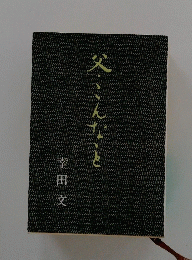 父・こんなこと
幸田文